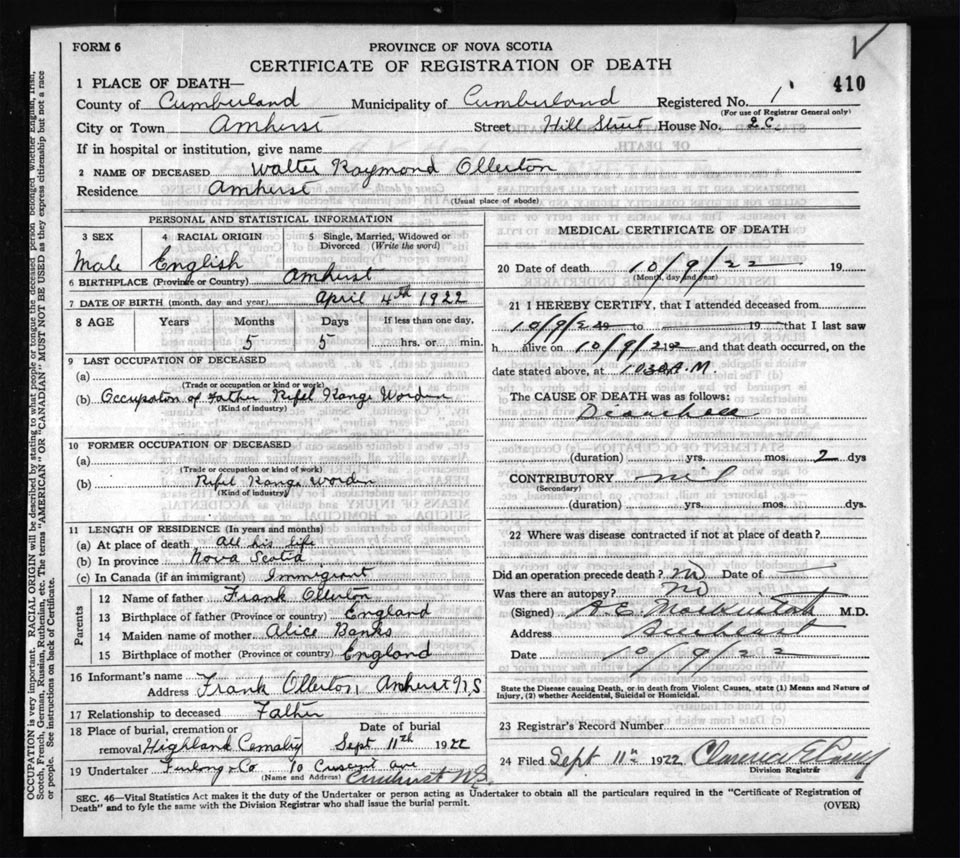 FORM 6
PROVINCE OF NOVA SCOTIA
CERTIFICATE OF REGISTRATION OF DEATH
410
1 PLACE OF DEATH—
County of Cumberland Municipality of Cumberland Registered No. 1
(For use of Registrar General only)
City or Town Amherst Street Hill Street House No. 2C
If in hospital or institution, give name
2 NAME OF DECEASED Walter Raymond Ollerton
Residence Amherst
(Usual place of abode)
PERSONAL AND STATISTICAL INFORMATION
3 SEX 4 RACIAL ORIGIN 5 Single, Married, Widowed or Divorced (Write the word)
Male English
6 BIRTHPLACE (Province or Country) Amherst
7 DATE OF BIRTH (month, day and year) April 4th 1922
8 AGE Years Months Days If less than one day,
5 5 hrs. or min.
9 LAST OCCUPATION OF DECEASED
(a)
(Trade or occupation or kind of work)
(b) Occupation of Father Rifel Range Worden
(Kind of industry)
10 FORMER OCCUPATION OF DECEASED
(a)
(Trade or occupation or kind of work)
(b) Rifel Range Worden
(Kind of industry)
11 LENGTH OF RESIDENCE (In years and months)
(a) At place of death All his life
(b) In province Nova Scotia
(c) In Canada (if an immigrant) Immigrant
Parents
12 Name of father Frank Ollerton
13 Birthplace of father (Province or country) England
14 Maiden name of mother Alice Banks
15 Birthplace of mother (Province or country) England
16 Informant's name
Address Frank Ollerton, Amherst N.S
17 Relationship to deceased Father
18 Place of burial, cremation or removal Highland Date of burial Sept 11th 1922
19 Undertaker Furlong & Co 70 Cresent ave
(Name and Address) Amherst N.S.
MEDICAL CERTIFICATE OF DEATH
20 Date of death 10/9/22 19
(Month, day and year)
21 I HEREBY CERTIFY, that I attended deceased from
10/9/22 to 19 that I last saw
h alive on 10/9/22 and that death occurred, on the
date stated above, at 1030 A.M
The CAUSE OF DEATH was as follows:
Diarrhoea
(duration) yrs. mos. 2 dys
CONTRIBUTORY nil
(Secondary)
(duration) yrs. mos. dys.
22 Where was disease contracted if not at place of death?
Did an operation precede death? no Date of
Was there an autopsy? no
(Signed) A.E. Mackintosh M.D.
Address Amherst
Date 10/9/22
State the Disease causing Death, or in death from Violent Causes, state (1) Means and Nature of Injury, (2) whether Accidental, Suicidal or Homicidal.
23 Registrar's Record Number
24 Filed Sept 11th 1922 Clarence E
Division Registrar
SEC. 46—Vital Statistics Act makes it the duty of the Undertaker or person acting as Undertaker to obtain all the particulars required in the "Certificate of Registration of
Death" and to fyle the same with the Division Registrar who shall issue the burial permit.
(OVER)
OCCUPATION is very important. RACIAL ORIGIN will be described by stating to what people or tongue the deceased person belonged whether English, Irish,
Scotch, French, German, Russian, Ruthenian, etc. The terms "AMERICAN" OR "CANADIAN" MUST NOT BE USED as they express citizenship but not a race
or people. See instructions on back of Certificate.